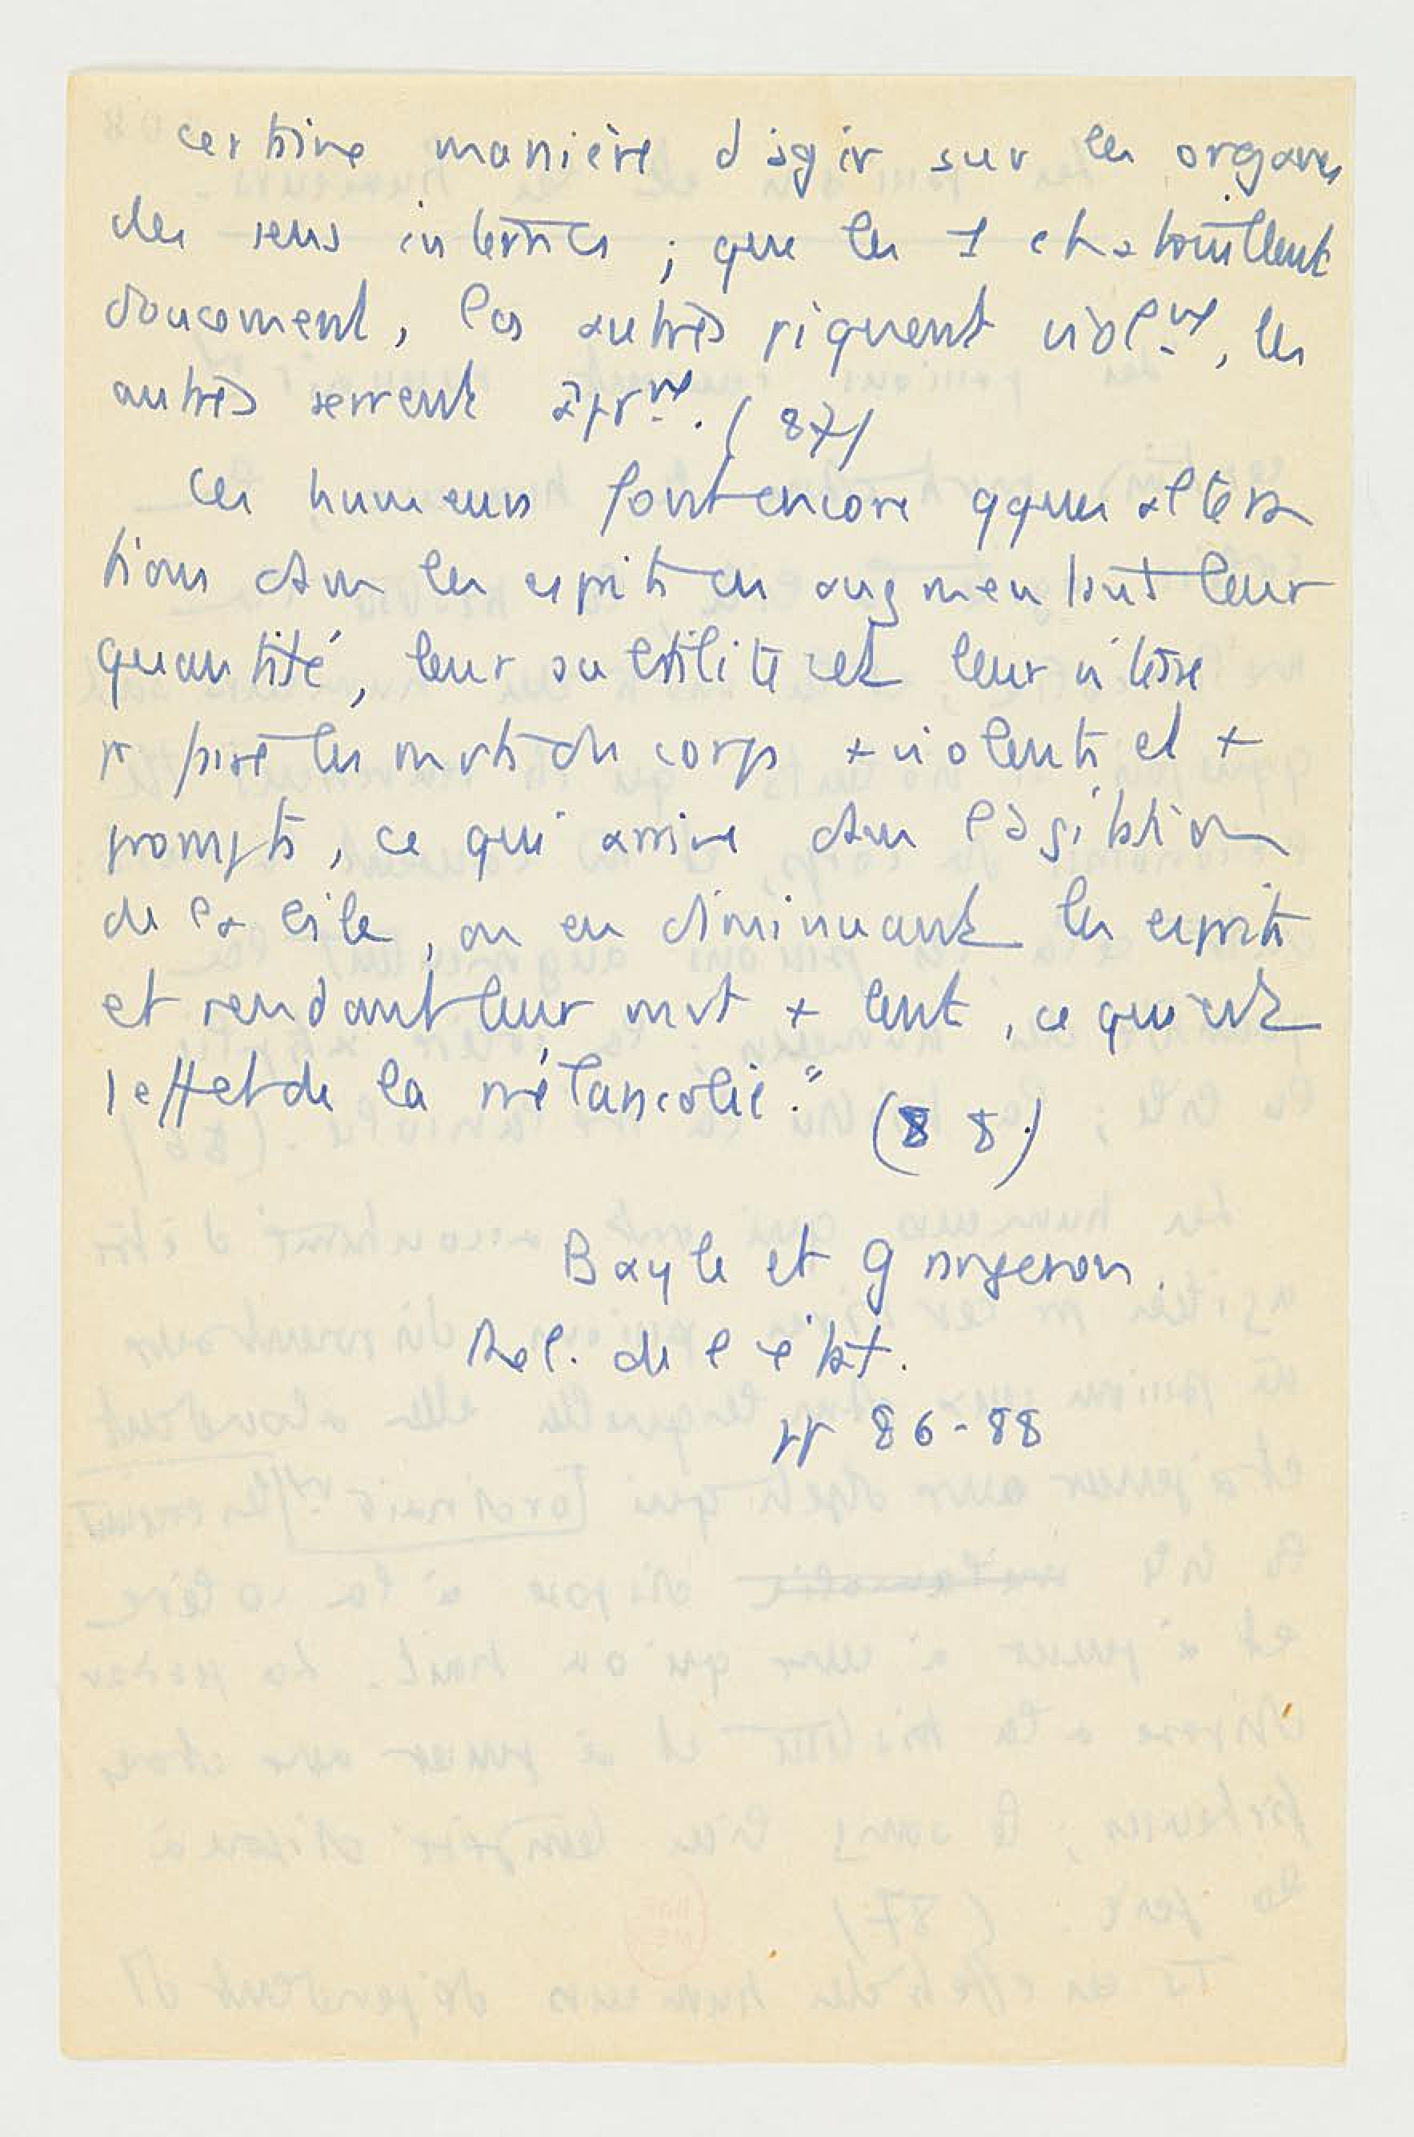 certaine manière d'agir sur les organes
des sens internes ; que les 1 chatouillent
doucement, les autres piquent violmt, les
autres serrent âprmt. (87)
Ces humeurs font encore qques altéra
tions dans les esprits en augmentant leur
quantité, leur subtilité et leur vitesse
pr les mvts du corps + violents et +
prompts, ce qui arrive dans l'agitation
de la bile, ou en diminuant les esprits
et rendant leur mvt + lent, ce qui est
l'effet de la mélancolie." (88)
Bayle et Grangeron.
Rel. de l'état.
pp 86-88